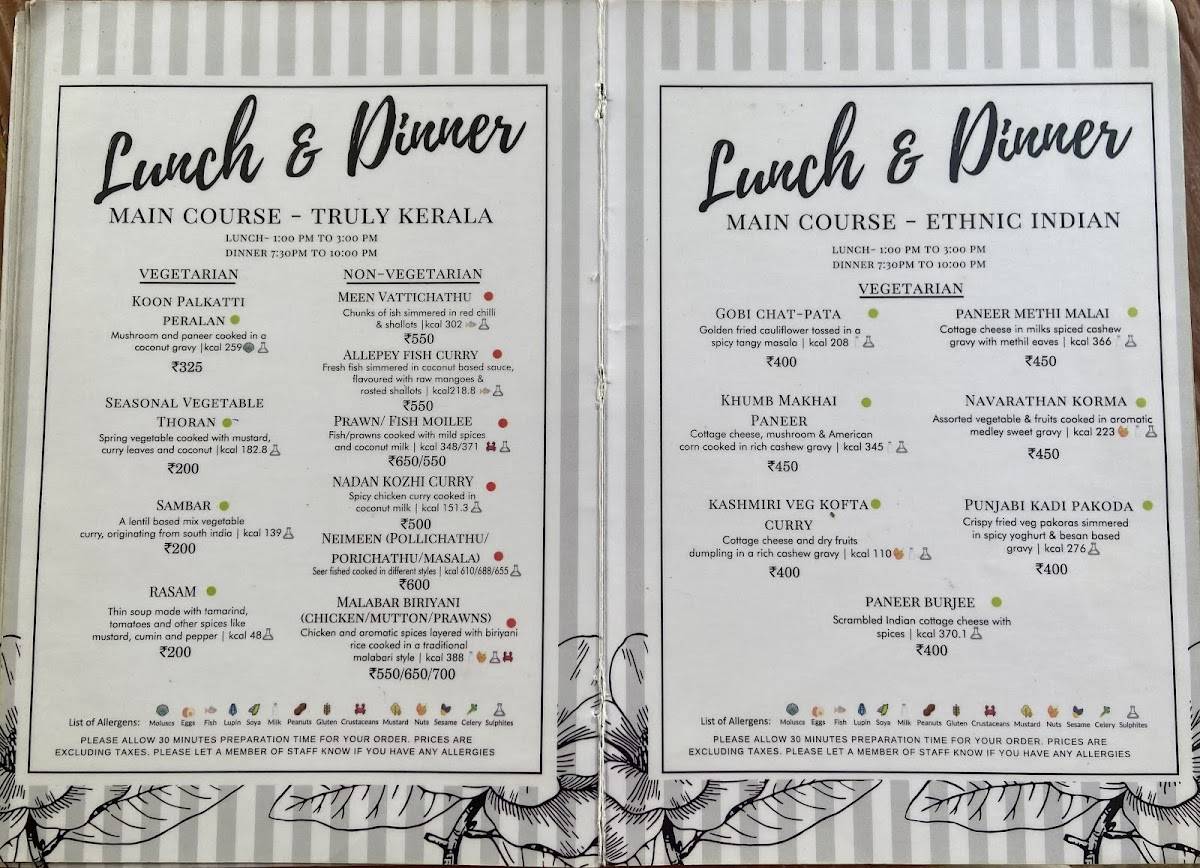 Lunch & Dinner
MAIN COURSE - TRULY KERALA
LUNCH- 1:00 PM TO 3:00 PM
DINNER 7:30PM TO 10:00 PM
VEGETARIAN
KOON PALKATTI
PERALAN
Mushroom and paneer cooked in a
coconut gravy |kcal 259
₹325
SEASONAL VEGETABLE
THORAN
Spring vegetable cooked with mustard,
curry leaves and coconut |kcal 182.8
₹200
SAMBAR
A lentil based mix vegetable
curry, originating from south india | kcal 139
₹200
RASAM
Thin soup made with tamarind,
tomatoes and other spices like
mustard, cumin and pepper | kcal 48
₹200
NON-VEGETARIAN
MEEN VATTICHATHU
Chunks of ish simmered in red chilli
& shallots |kcal 302
₹550
ALLEPEY FISH CURRY
Fresh fish simmered in coconut based sauce,
flavoured with raw mangoes &
rosted shallots | kcal218.8
₹550
PRAWN/ FISH MOILEE
Fish/prawns cooked with mild spices
and coconut milk | kcal 348/371
₹650/550
NADAN KOZHI CURRY
Spicy chicken curry cooked in
coconut milk | kcal 151.3
₹500
NEIMEEN (POLLICHATHU/
PORICHATHU/MASALA)
Seer fished cooked in different styles | kcal 610/688/655
₹600
MALABAR BIRIYANI
(CHICKEN/MUTTON/PRAWNS)
Chicken and aromatic spices layered with biriyani
rice cooked in a traditional
malabari style | kcal 388
₹550/650/700
List of Allergens: Moluscs Eggs Fish Lupin Soya Milk Peanuts Gluten Crustaceans Mustard Nuts Sesame Celery Sulphites
PLEASE ALLOW 30 MINUTES PREPARATION TIME FOR YOUR ORDER. PRICES ARE
EXCLUDING TAXES. PLEASE LET A MEMBER OF STAFF KNOW IF YOU HAVE ANY ALLERGIES
Lunch & Dinner
MAIN COURSE - ETHNIC INDIAN
LUNCH- 1:00 PM TO 3:00 PM
DINNER 7:30PM TO 10:00 PM
VEGETARIAN
GOBI CHAT-PATA
Golden fried cauliflower tossed in a
spicy tangy masala | kcal 208
₹400
KHUMB MAKHAI
PANEER
Cottage cheese, mushroom & American
corn cooked in rich cashew gravy | kcal 345
₹450
KASHMIRI VEG KOFTA
CURRY
Cottage cheese and dry fruits
dumpling in a rich cashew gravy | kcal 110
₹400
PANEER METHI MALAI
Cottage cheese in milks spiced cashew
gravy with methil eaves | kcal 366
₹450
NAVARATHAN KORMA
Assorted vegetable & fruits cooked in aromatic
medley sweet gravy | kcal 223
₹450
PUNJABI KADI PAKODA
Crispy fried veg pakoras simmered
in spicy yoghurt & besan based
gravy | kcal 276
₹400
PANEER BURJEE
Scrambled Indian cottage cheese with
spices | kcal 370.1
₹400
List of Allergens: Moluscs Eggs Fish Lupin Soya Milk Peanuts Gluten Crustaceans Mustard Nuts Sesame Celery Sulphites
PLEASE ALLOW 30 MINUTES PREPARATION TIME FOR YOUR ORDER. PRICES ARE
EXCLUDING TAXES. PLEASE LET A MEMBER OF STAFF KNOW IF YOU HAVE ANY ALLERGIES